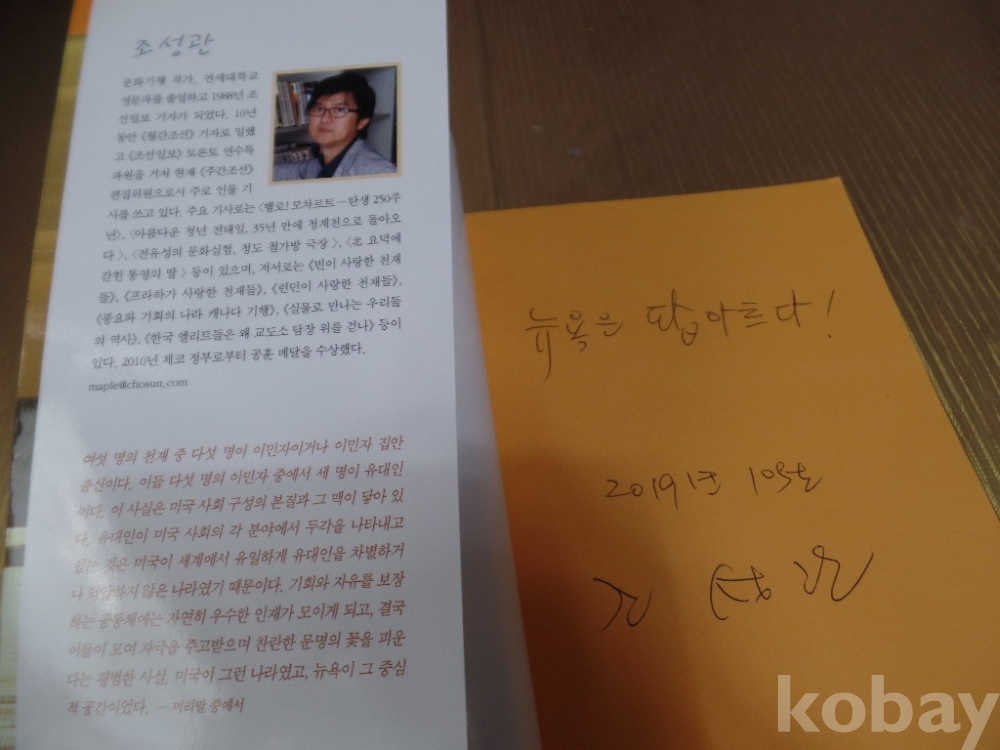 조성관
문화기행 작가. 연세대학교
영문과를 졸업하고 1988년 조
선일보 기자가 되었다. 10년
동안 《월간조선》 기자로 일했
고 《조선일보》 토론토 연수특
파원을 거쳐 현재 《주간조선》
편집위원으로서 주로 인물 기
사를 쓰고 있다. 주요 기사로는 〈헬로! 모차르트 – 탄생 250주
년〉, 〈아름다운 청년 전태일, 35년 만에 청계천으로 돌아오
다〉, 〈전유성의 문화실험, 청도 철가방 극장〉, 〈北 요덕에
갇힌 통영의 딸〉 등이 있으며, 저서로는 《빈이 사랑한 천재
들》, 《프라하가 사랑한 천재들》, 《런던이 사랑한 천재들》,
《풍요와 기회의 나라 캐나다 기행》, 《실물로 만나는 우리들
의 역사》, 《한국 엘리트들은 왜 교도소 담장 위를 걷나》 등이
있다. 2010년 체코 정부로부터 공훈 메달을 수상했다.
maple@chosun.com
여섯 명의 천재 중 다섯 명이 이민자이거나 이민자 집안
출신이다. 이들 다섯 명의 이민자 중에서 세 명이 유대인
이다. 이 사실은 미국 사회 구성의 본질과 그 맥이 닿아 있
다. 유대인이 미국 사회의 각 분야에서 두각을 나타내고
있는 것은 미국이 세계에서 유일하게 유대인을 차별하거
나 억압하지 않은 나라였기 때문이다. 기회와 자유를 보장
하는 공동체에는 자연히 우수한 인재가 모이게 되고, 결국
이들이 모여 자극을 주고받으며 찬란한 문명의 꽃을 피운
다는 평범한 사실. 미국이 그런 나라였고, 뉴욕이 그 중심
적 공간이었다. – 머리말 중에서
뉴욕은 팝아트다!
2019년 10월
조성관
kobay